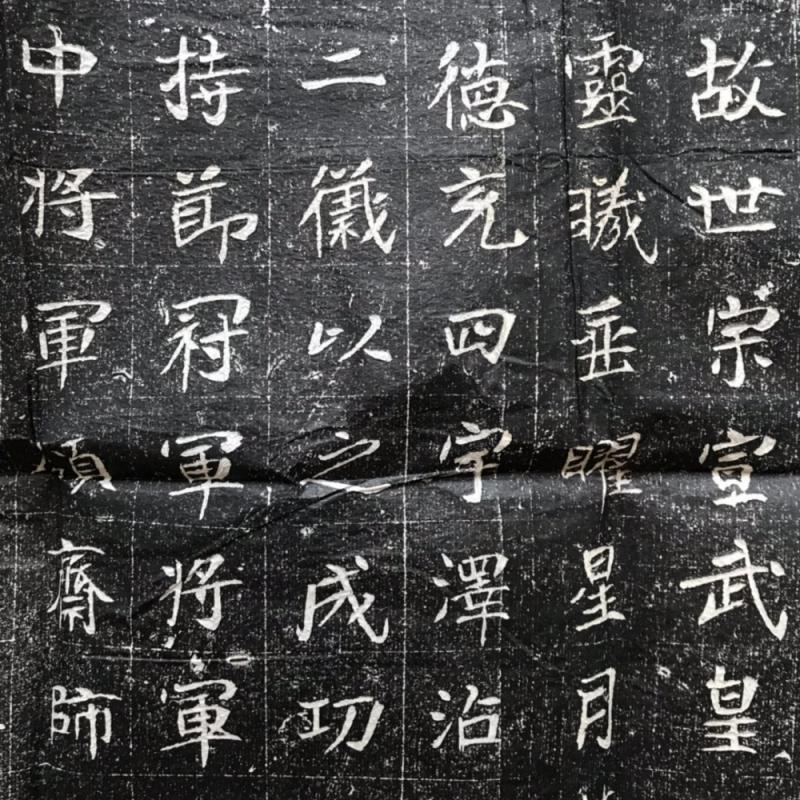 故世宗宣武皇
靈曦垂曜星月
德充四宇澤沾
二儀以之成功
持節冠軍將軍
中將軍領齋師